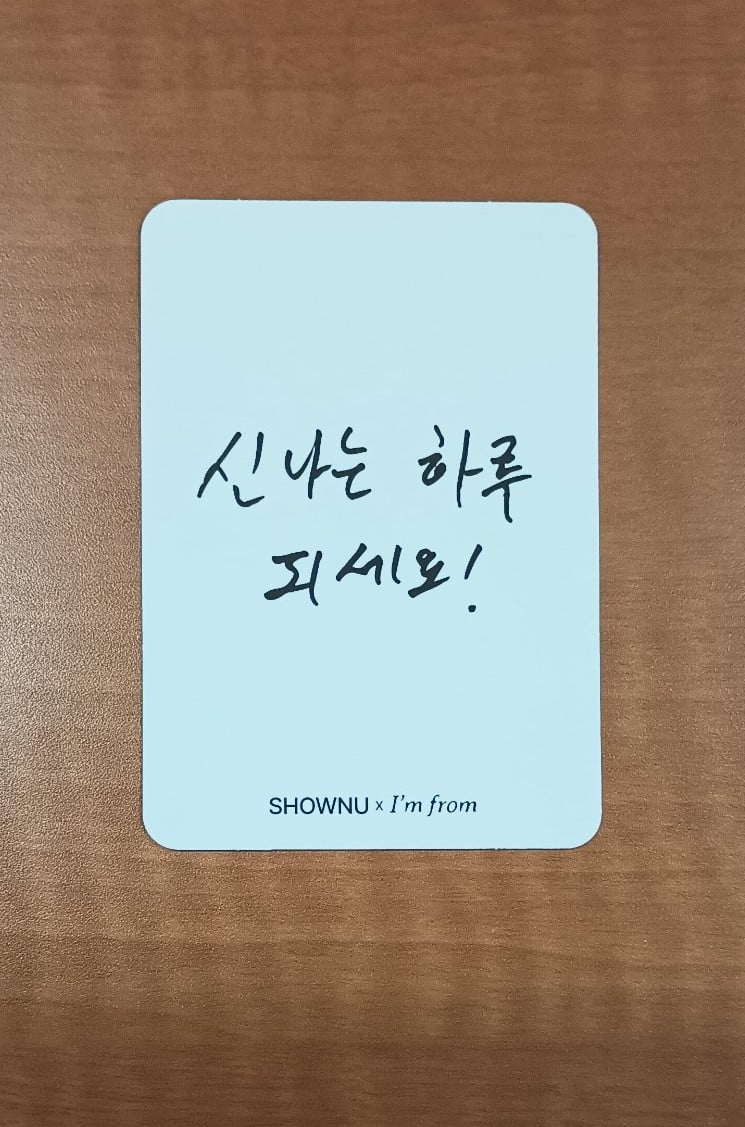 신나는 하루
되세요!
SHOWNU x I'm from